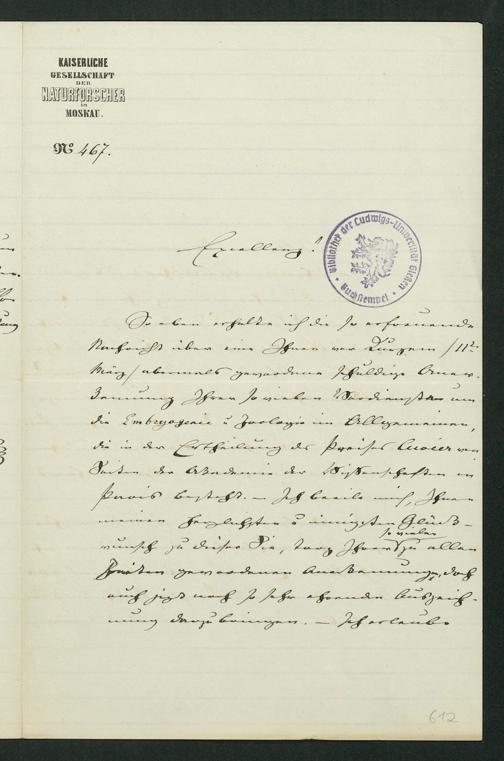 KAISERLICHE
GESELLSCHAFT
DER
NATURFORSCHER
in
MOSKAU.
No 467.
Bibliothek der Ludwigs-Universität Gießen
Buchstempel
Excellenz!
So eben erhalte ich die so erfreuende
Nachricht über eine Ihnen vor Kurzem /11ten
März/ abermals gewordene schuldige Aner-
kennung Ihrer so vielen Verdienste um
die Embryogenie u Zoologie im Allgemeinen,
die in der Ertheilung des Preises Cuvier von
Seiten der Akademie der Wissenschaften in
Paris besteht. – Ich beeile mich, Ihnen
meinen herzlichsten u innigsten Glück-
wunsch zu dieser Sie, trotz Ihrer so vielen zu allen
Zeiten gewordenen Anerkennungen, doch
auch jetzt noch so sehr ehrende Auszeich-
nung darzubringen. – Ich erlaube
612